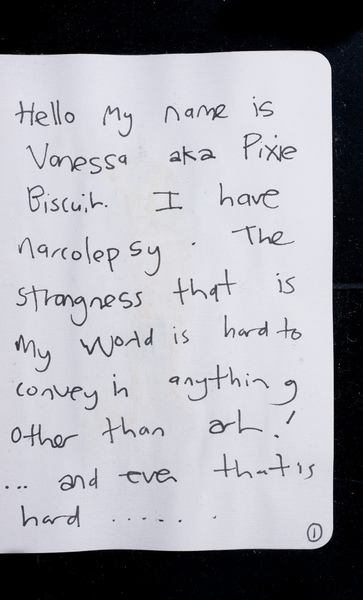 Hello My name is
Vanessa aka Pixie
Biscuit. I have
narcolepsy. The
strangness that is
My World is hard to
convey in anything
other than art!
... and even that is
hard ......
1